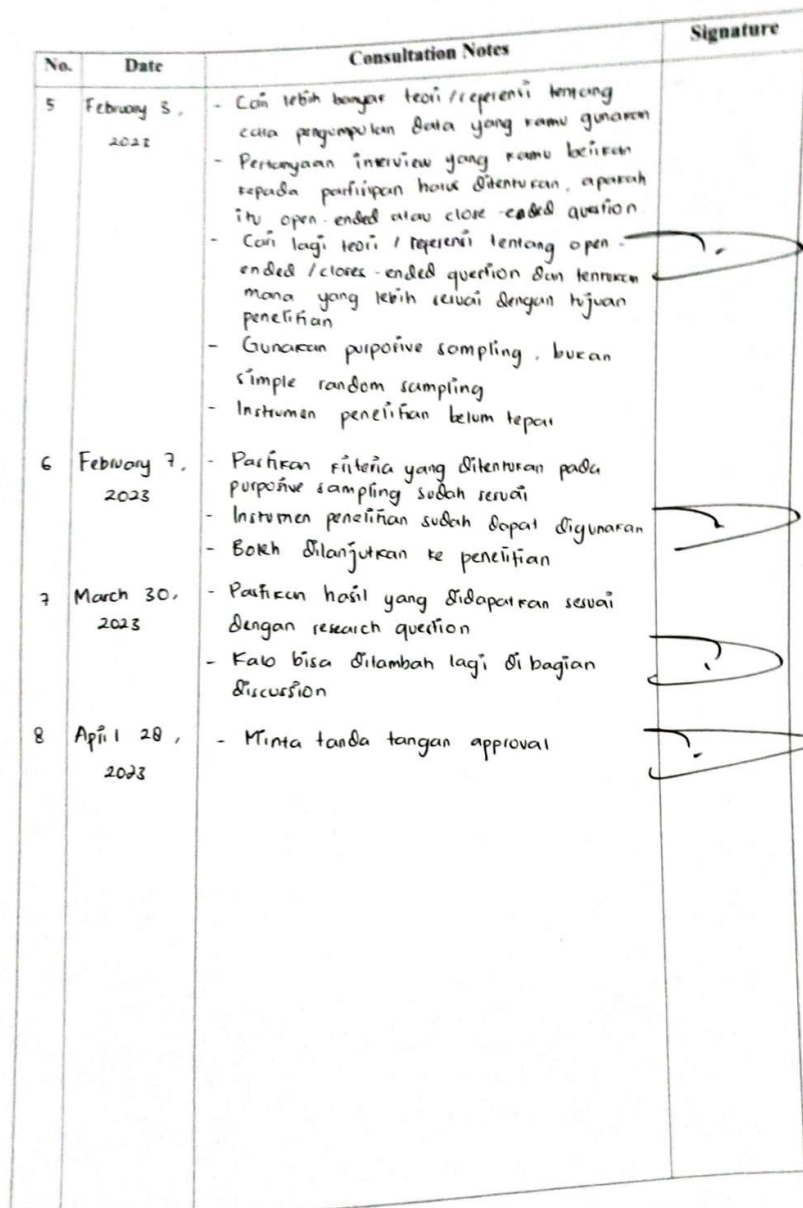 No. Date Consultation Notes Signature
5 February 3, - Cari lebih banyak teori / referensi tentang
2023 cara pengumpulan data yang kamu gunakan
- Pertanyaan interview yang kamu berikan
kepada partisipan harus ditentukan, apakah
itu open-ended atau close-ended question
- Cari lagi teori / referensi tentang open-
ended / closes-ended question dan tentukan
mana yang lebih sesuai dengan tujuan
penelitian
- Gunakan purposive sampling, bukan
simple random sampling
- Instrumen penelitian belum tepat
6 February 7, - Pastikan kriteria yang ditentukan pada
2023 purposive sampling sudah sesuai
- Instrumen penelitian sudah dapat digunakan
- Boleh dilanjutkan ke penelitian
7 March 30, - Pastikan hasil yang didapatkan sesuai
2023 dengan research question
- Kalo bisa ditambah lagi di bagian
discussion
8 April 28, - Minta tanda tangan approval
2023